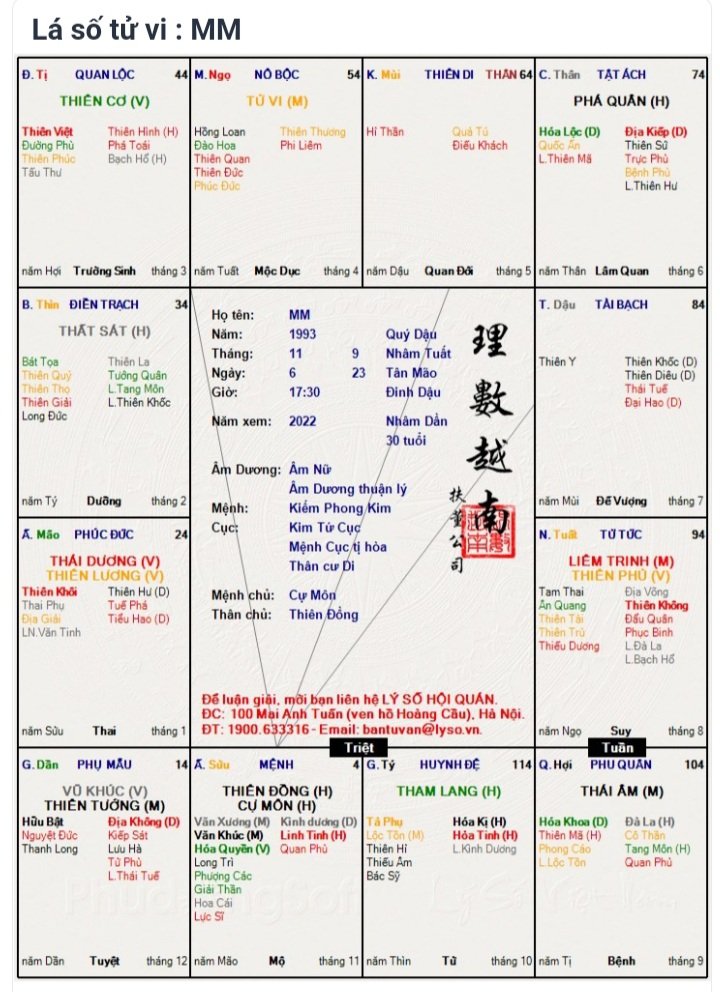 Lá số tử vi : MM
Đ. Tị QUAN LỘC 44
THIÊN CƠ (V)
Thiên Việt Thiên Hình (H)
Đường Phù Phá Toái
Thiên Phúc Bạch Hổ (H)
Tấu Thư
năm Hợi Trường Sinh tháng 3
M. Ngọ NÔ BỘC 54
TỬ VI (M)
Hồng Loan Thiên Thương
Đào Hoa Phi Liêm
Thiên Quan
Thiên Đức
Phúc Đức
năm Tuất Mộc Dục tháng 4
K. Mùi THIÊN DI THÂN 64
Hỉ Thần Quả Tú
Điếu Khách
năm Dậu Quan Đới tháng 5
C. Thân TẬT ÁCH 74
PHÁ QUÂN (H)
Hóa Lộc (D) Địa Kiếp (D)
Quốc Ấn Thiên Sứ
L.Thiên Mã Trực Phù
Bệnh Phù
L.Thiên Hư
năm Thân Lâm Quan tháng 6
B. Thìn ĐIỀN TRẠCH 34
THẤT SÁT (H)
Bát Tọa Thiên La
Thiên Quý Tướng Quân
Thiên Thọ L.Tang Môn
Thiên Giải L.Thiên Khốc
Long Đức
năm Tý Dưỡng tháng 2
Họ tên: MM
Năm: 1993 Quý Dậu
Tháng: 11 9 Nhâm Tuất
Ngày: 6 23 Tân Mão
Giờ: 17:30 Đinh Dậu
Năm xem: 2022 Nhâm Dần
30 tuổi
Âm Dương: Âm Nữ
Âm Dương thuận lý
Mệnh: Kiếm Phong Kim
Cục: Kim Tứ Cục
Mệnh Cục tị hòa
Thân cư Di
Mệnh chủ: Cự Môn
Thân chủ: Thiên Đồng
理數越南
扶董公司
Để luận giải, mời bạn liên hệ LÝ SỐ HỘI QUÁN.
ĐC: 100 Mai Anh Tuấn (ven hồ Hoàng Cầu), Hà Nội.
ĐT: 1900.633316 - Email: bantuvan@lyso.vn.
T. Dậu TÀI BẠCH 84
Thiên Y Thiên Khốc (D)
Thiên Diêu (D)
Thái Tuế
Đại Hao (D)
năm Mùi Đế Vượng tháng 7
Ấ. Mão PHÚC ĐỨC 24
THÁI DƯƠNG (V)
THIÊN LƯƠNG (V)
Thiên Khôi Thiên Hư (D)
Thai Phụ Tuế Phá
Địa Giải Tiểu Hao (D)
LN.Văn Tinh
năm Sửu Thai tháng 1
N. Tuất TỬ TỨC 94
LIÊM TRINH (M)
THIÊN PHỦ (V)
Tam Thai Địa Võng
Ân Quang Thiên Không
Thiên Tài Đẩu Quân
Thiên Trù Phục Binh
Thiếu Dương L.Đà La
L.Bạch Hổ
năm Ngọ Suy tháng 8
Triệt
Tuần
G. Dần PHỤ MẪU 14
VŨ KHÚC (V)
THIÊN TƯỚNG (M)
Hữu Bật Địa Không (D)
Nguyệt Đức Kiếp Sát
Thanh Long Lưu Hà
Tử Phù
L.Thái Tuế
năm Dần Tuyệt tháng 12
Ấ. Sửu MỆNH 4
THIÊN ĐỒNG (H)
CỰ MÔN (H)
Văn Xương (M) Kình dương (D)
Văn Khúc (M) Linh Tinh (H)
Hóa Quyền (V) Quan Phù
Long Trì
Phượng Các
Giải Thần
Hoa Cái
Lực Sĩ
năm Mão Mộ tháng 11
G. Tý HUYNH ĐỆ 114
THAM LANG (H)
Tả Phụ Hóa Kị (H)
Lộc Tồn (M) Hỏa Tinh (H)
Thiên Hỉ L.Kình Dương
Thiếu Âm
Bác Sỹ
năm Thìn Tử tháng 10
Q. Hợi PHU QUÂN 104
THÁI ÂM (M)
Hóa Khoa (D) Đà La (H)
Thiên Mã (H) Cô Thần
Phong Cáo Tang Môn (H)
L.Lộc Tồn Quan Phủ
năm Tị Bệnh tháng 9